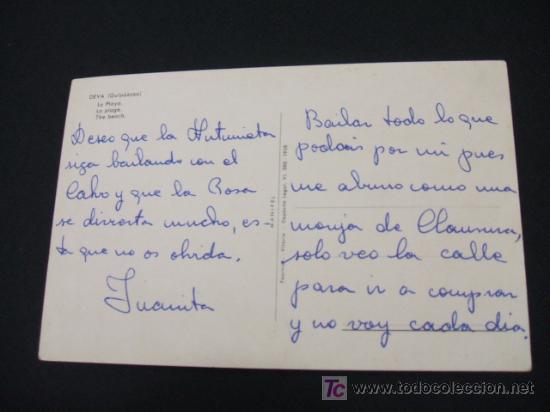 DEVA (Guipúzcoa)
La Playa.
La plage.
The beach.
Deseo que la
siga bailando con el
Calvo y que la Rosa
se divierta mucho, es-
ta que no os olvida.
Juanita
MANIPEL
Bailar todo lo que
podais por mi pues
me aburro como una
monja de Clausura,
solo veo la calle
para ir a comprar
y no voy cada dia.
todocoleccion
www.todocoleccion.net